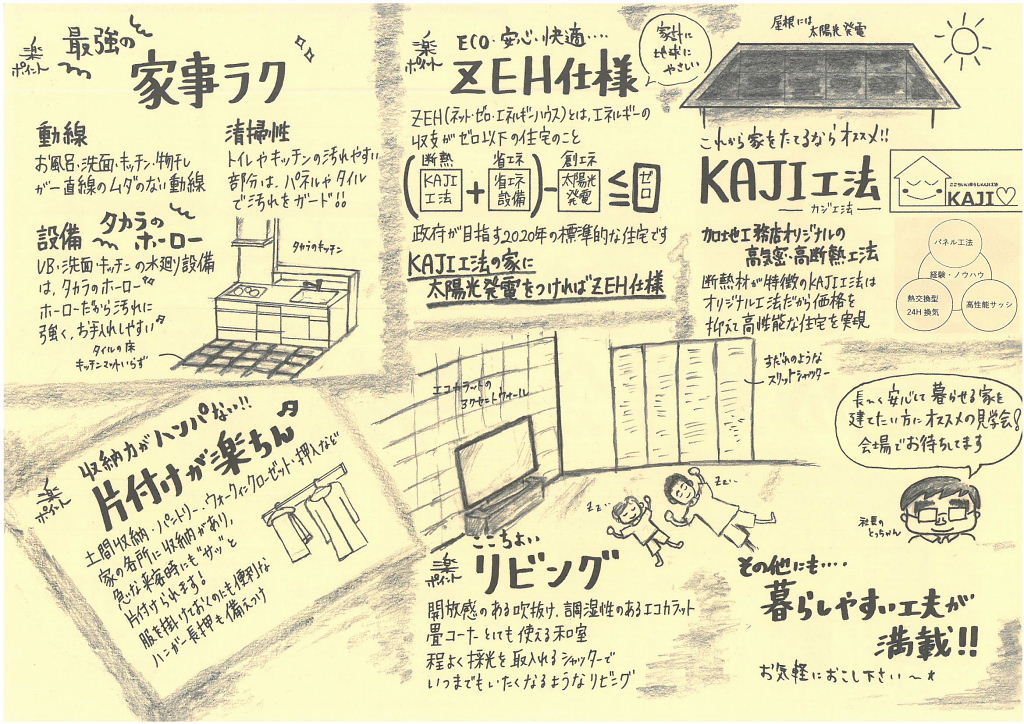 楽ポイント
最強の
家事ラク
動線
お風呂・洗面・キッチン・物干し
が一直線のムダのない動線
清掃性
トイレやキッチンの汚れやすい
部分は、パネルやタイル
で汚れをガード!!
設備 タカラの
ホーロー
UB・洗面・キッチンの水廻り設備
は、タカラのホーロー
ホーローだから汚れに
強く、お手入れしやすい
タカラのキッチン
タイルの床
キッチンマットいらず
楽ポイント
ECO・安心・快適‥‥
ZEH仕様
家計に
地球に
やさしい
ZEH(ネット・ゼロ・エネルギーハウス)とは、エネルギーの
収支がゼロ以下の住宅のこと
断熱 省エネ 創エネ
(KAJI工法+省エネ設備)-太陽光発電≦ゼロ
政府が目指す2020年の標準的な住宅です
KAJI工法の家に
太陽光発電をつければZEH仕様
屋根には
太陽光発電
これから家をたてるならオススメ!!
KAJI工法
カジ工法
ここちいいぼうしつぃん工法
KAJI♡
加地工務店オリジナルの
高気密・高断熱工法
断熱材が特徴のKAJI工法は
オリジナル工法だから価格を
抑えて高性能な住宅を実現
パネル工法
経験・ノウハウ
熱交換型
24H換気
高性能サッシ
楽ポイント
収納力がハンパない!!
片付けが楽ちん♪
土間収納・パントリー・ウォークインクローゼット・押入など
家の各所に収納があり、
急な来客時にも"サッ"と
片付けられます!
服を掛けておくのにも便利な
ハンガー長押も備えつけ
エコカラットの
アクセントウォール
すだれのような
スリットシャッター
Zz‥
Zz‥
楽ポイント
ここちよい
リビング
開放感のある吹抜け、調湿性のあるエコカラット
畳コーナーとしても使える和室
程よく採光を取入れるシャッターで
いつまでもいたくなるようなリビング
長〜く安心して暮らせる家を
建てたい方にオススメの見学会!
会場でお待ちしてます
社長の
とっちゃん
その他にも‥‥
暮らしやすい工夫が
満載!!
お気軽におこし下さい〜★